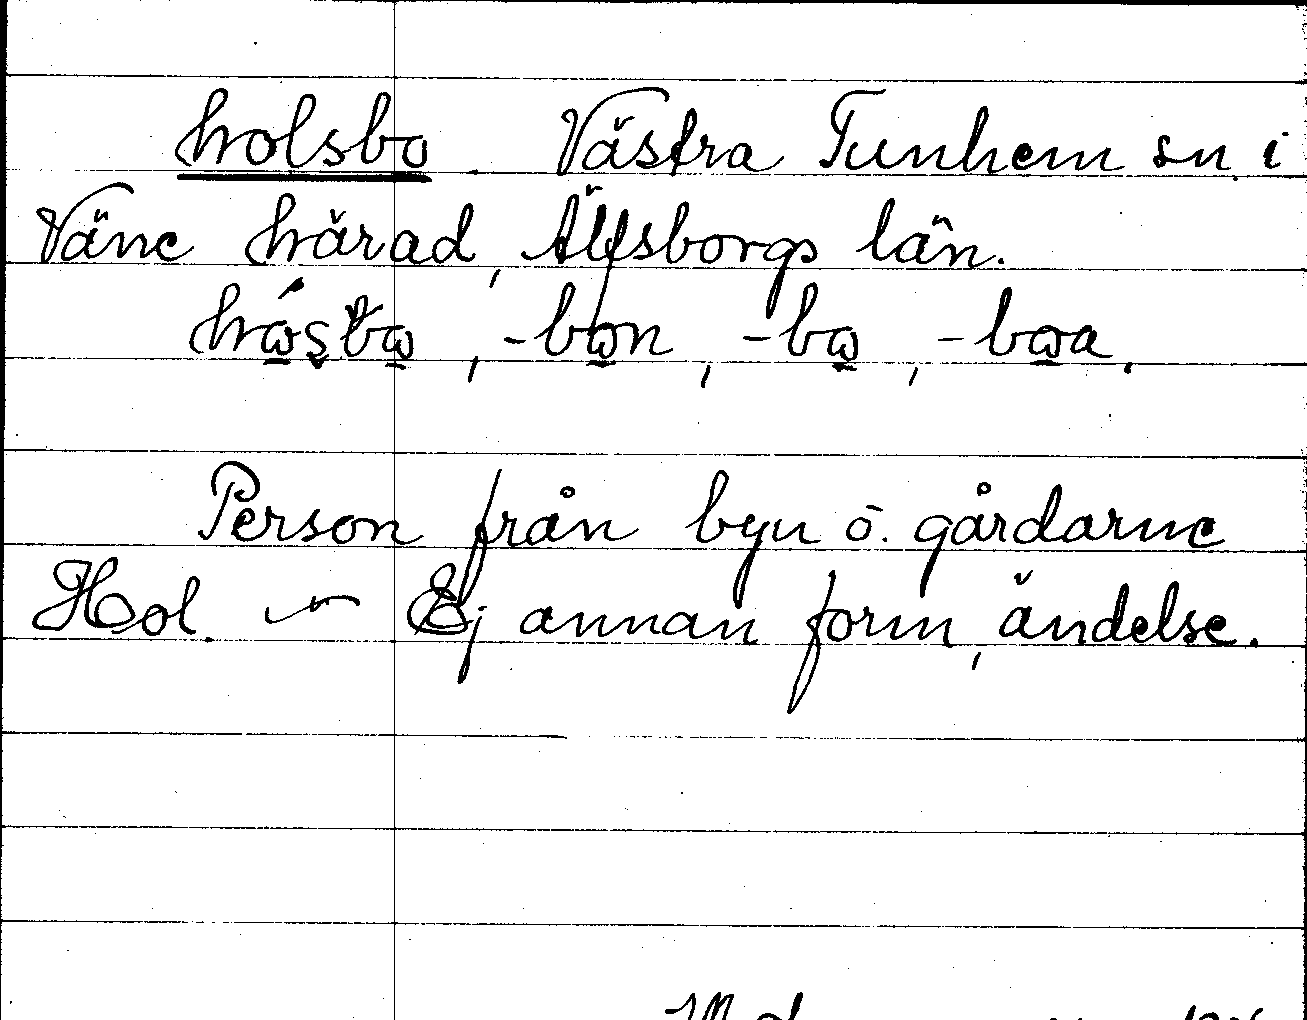 holsbo. Västra Tunhem sn. i
Väne härad, Älfsborgs län.
-bon, -bo, -boa.
Person från byn o. gårdarne
Hol. ~ Ej annan form, ändelse.